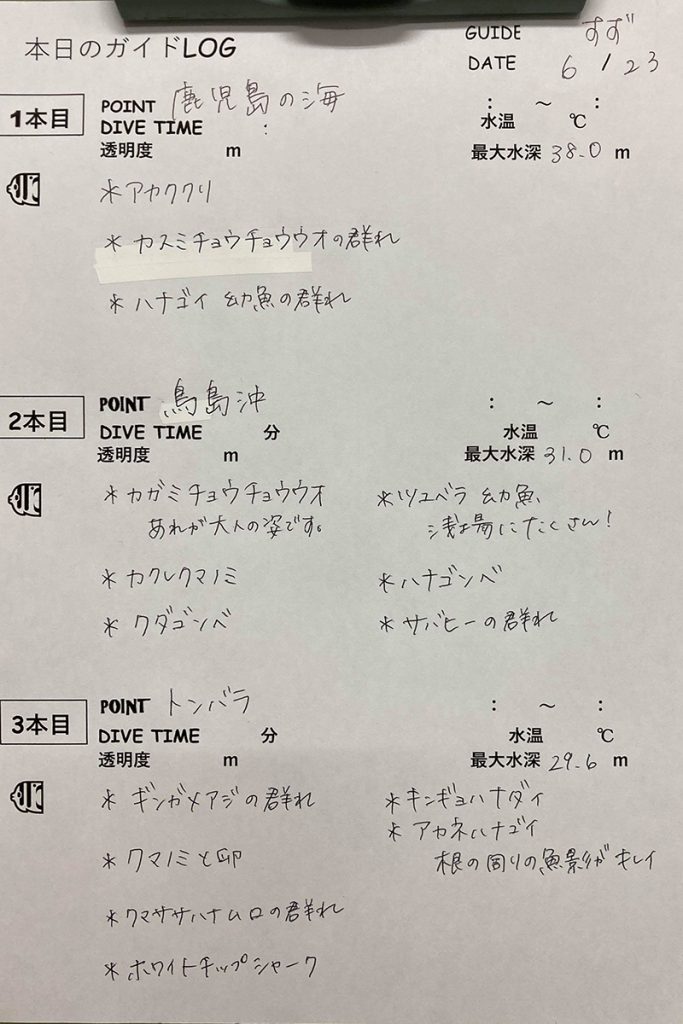 本日のガイドLOG
GUIDE すず
DATE 6 / 23
1本目
POINT 鹿児島の海
DIVE TIME :
: ～ :
水温 ℃
透明度 m
最大水深 38.0 m
*アカククリ
* カスミチョウチョウウオの群れ
* ハナゴイ 幼魚の群れ
2本目
POINT 鳥島沖
: ～ :
DIVE TIME 分
水温 ℃
透明度 m
最大水深 31.0 m
* カガミチョウチョウウオ
あれが大人の姿です。
* カクレクマノミ
* クダゴンベ
* ツユベラ 幼魚、
浅場にたくさん!
* ハナゴンベ
* サバヒーの群れ
3本目
POINT トンバラ
: ～ :
DIVE TIME 分
水温 ℃
透明度 m
最大水深 29.6 m
* ギンガメアジの群れ
* クマノミと卵
* クマササハナムロの群れ
* ホワイトチップシャーク
* キンギョハナダイ
* アカネハナゴイ
根の周りの魚影がキレイ